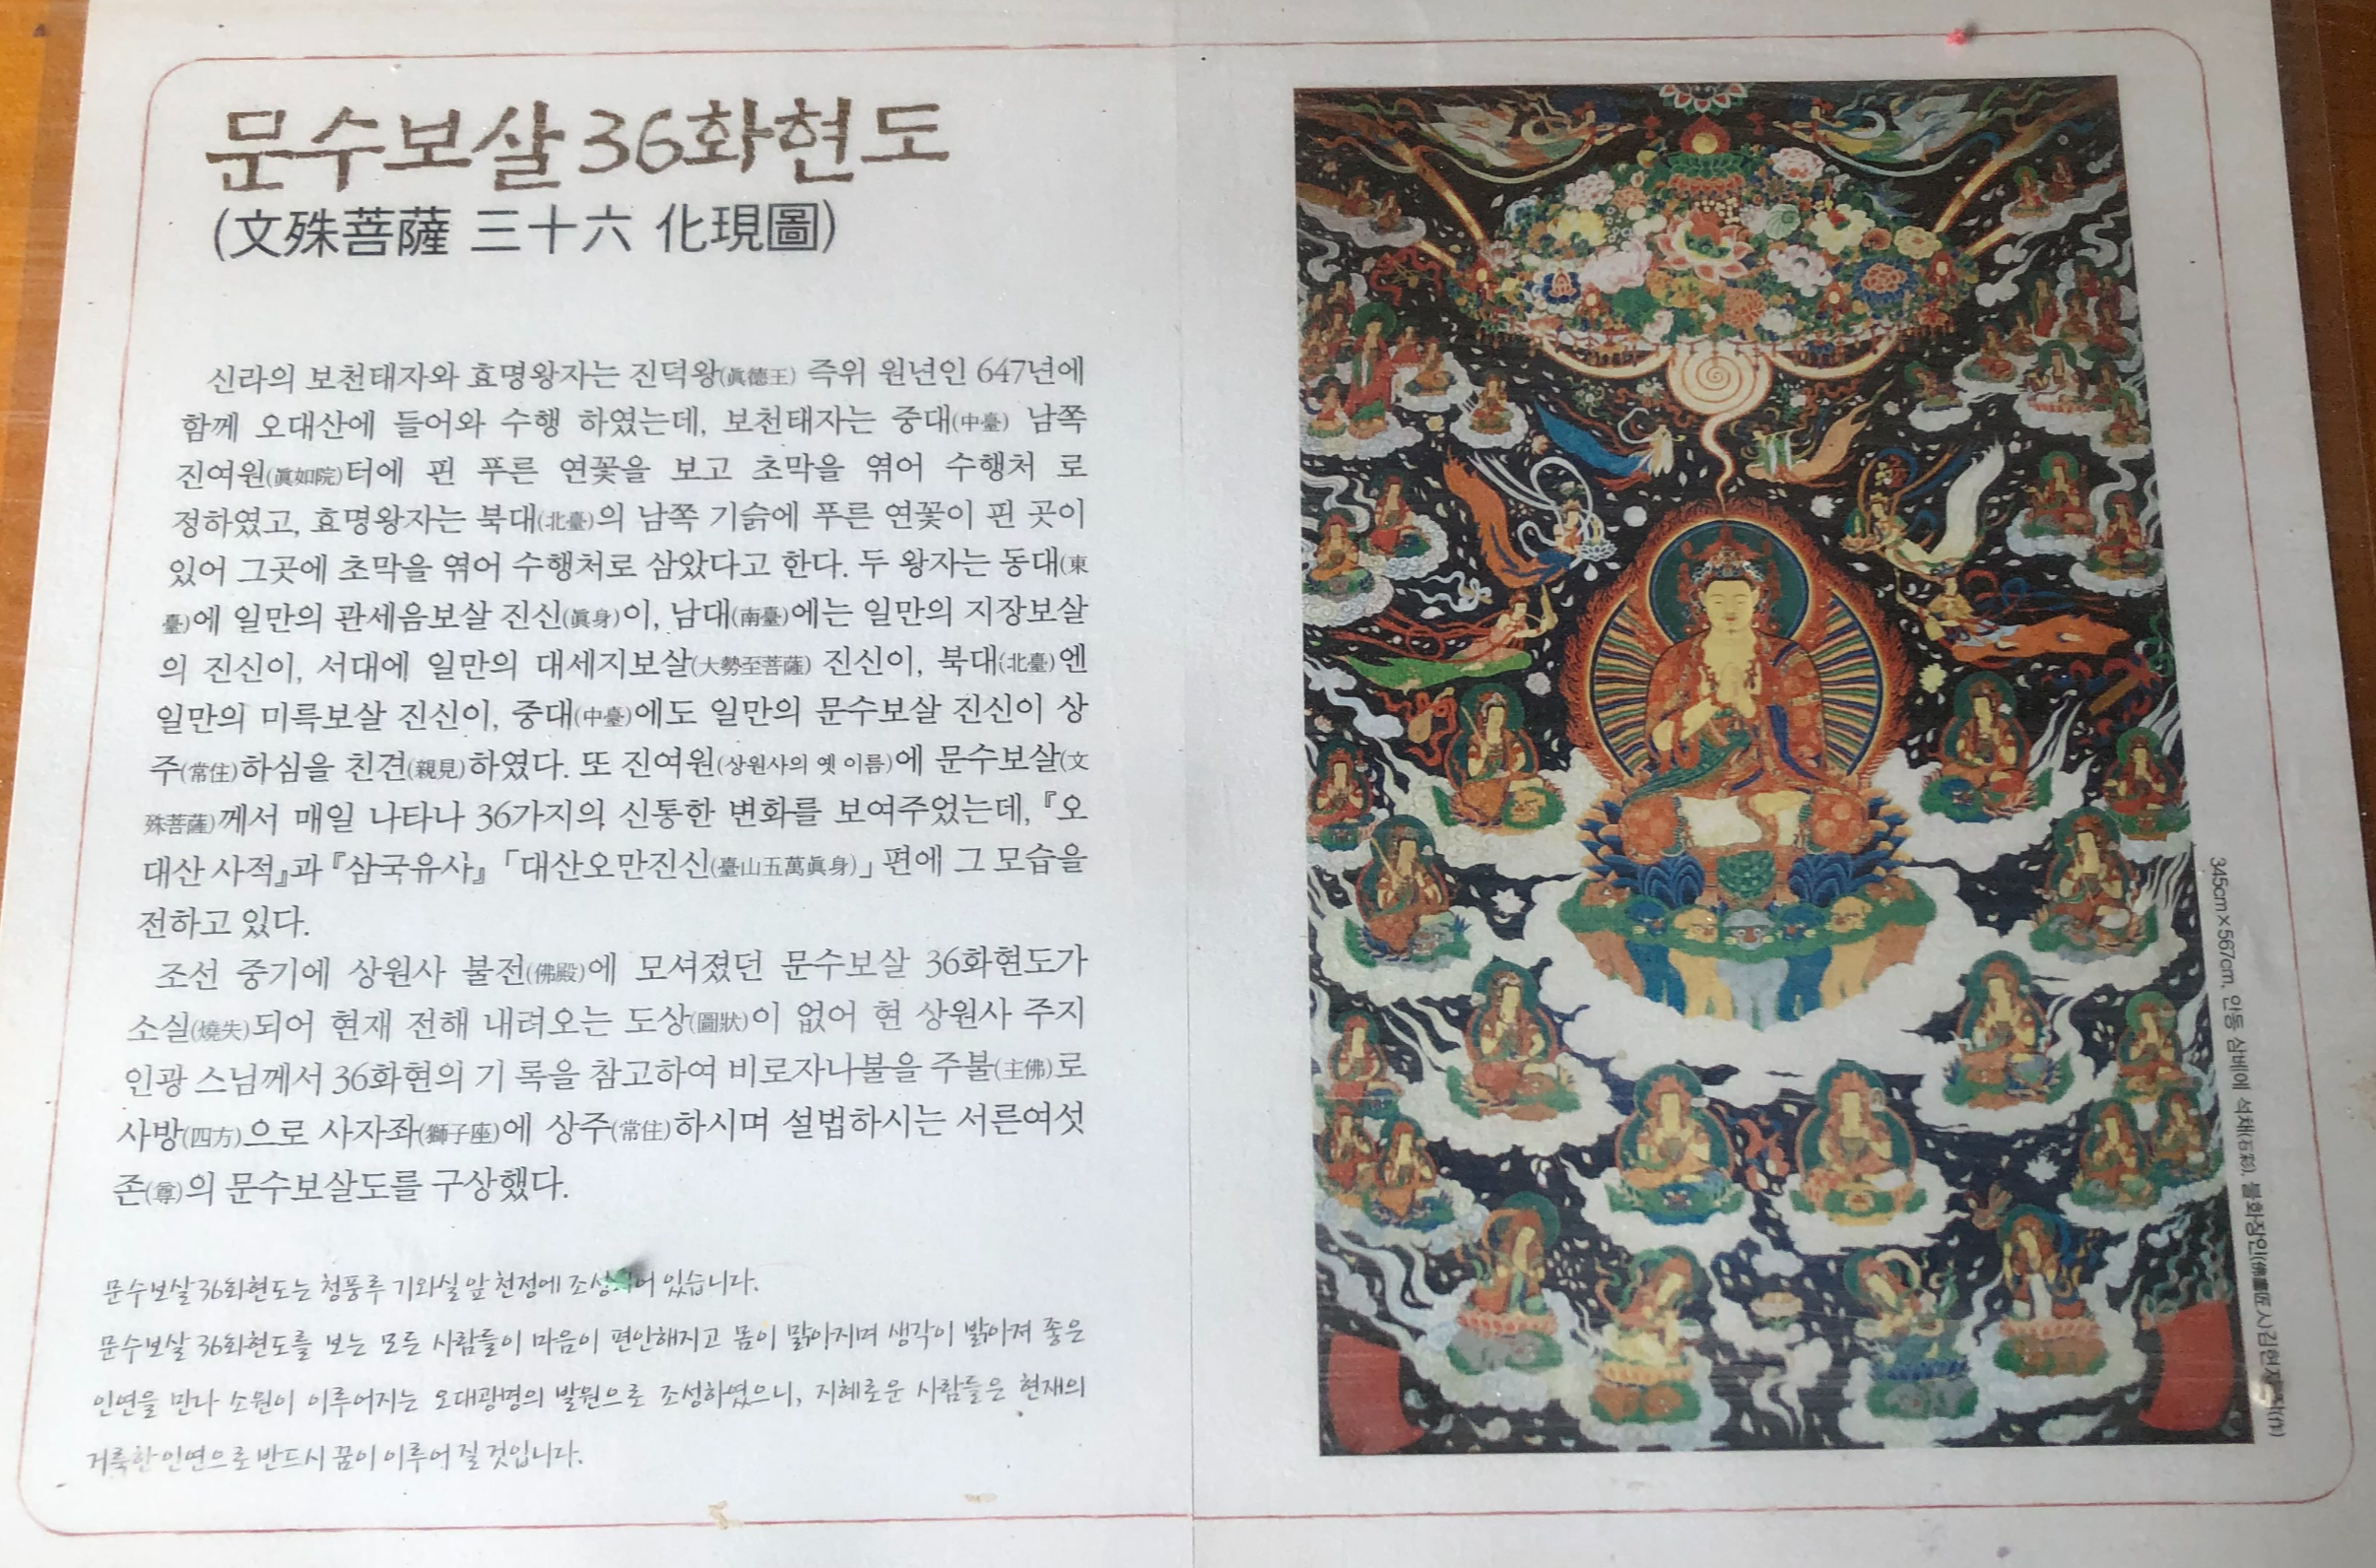 문수보살 36화현도
(文殊菩薩 三十六 化現圖)
신라의 보천태자와 효명왕자는 진덕왕(眞德王) 즉위 원년인 647년에
함께 오대산에 들어와 수행 하였는데, 보천태자는 중대(中臺) 남쪽
진여원(眞如院)터에 핀 푸른 연꽃을 보고 초막을 엮어 수행처 로
정하였고, 효명왕자는 북대(北臺)의 남쪽 기슭에 푸른 연꽃이 핀 곳이
있어 그곳에 초막을 엮어 수행처로 삼았다고 한다. 두 왕자는 동대(東
臺)에 일만의 관세음보살 진신(眞身)이, 남대(南臺)에는 일만의 지장보살
의 진신이, 서대에 일만의 대세지보살(大勢至菩薩) 진신이, 북대(北臺)엔
일만의 미륵보살 진신이, 중대(中臺)에도 일만의 문수보살 진신이 상
주(常住)하심을 친견(親見)하였다. 또 진여원(상원사의 옛 이름)에 문수보살(文
殊菩薩)께서 매일 나타나 36가지의 신통한 변화를 보여주었는데, 『오
대산 사적』과 『삼국유사』 「대산오만진신(臺山五萬眞身)」 편에 그 모습을
전하고 있다.
조선 중기에 상원사 불전(佛殿)에 모셔졌던 문수보살 36화현도가
소실(燒失)되어 현재 전해 내려오는 도상(圖狀)이 없어 현 상원사 주지
인광 스님께서 36화현의 기 록을 참고하여 비로자나불을 주불(主佛)로
사방(四方)으로 사자좌(獅子座)에 상주(常住)하시며 설법하시는 서른여섯
존(尊)의 문수보살도를 구상했다.
문수보살 36화현도는 청풍루 기와실 앞 천정에 있습니다.
문수보살 36화현도를 보는 모든 사람들이 마음이 편안해지고 몸이 맑아지며 생각이 밝아져 좋은
인연을 만나 소원이 이루어지는 오대광명의 발원으로 조성하였으니, 지혜로운 사람들은 현재의
거룩한 인연으로 반드시 꿈이 이루어 질 것입니다.
345cm×567cm, 안동 삼베에 석채(石彩), 불화장인(佛畵匠人)